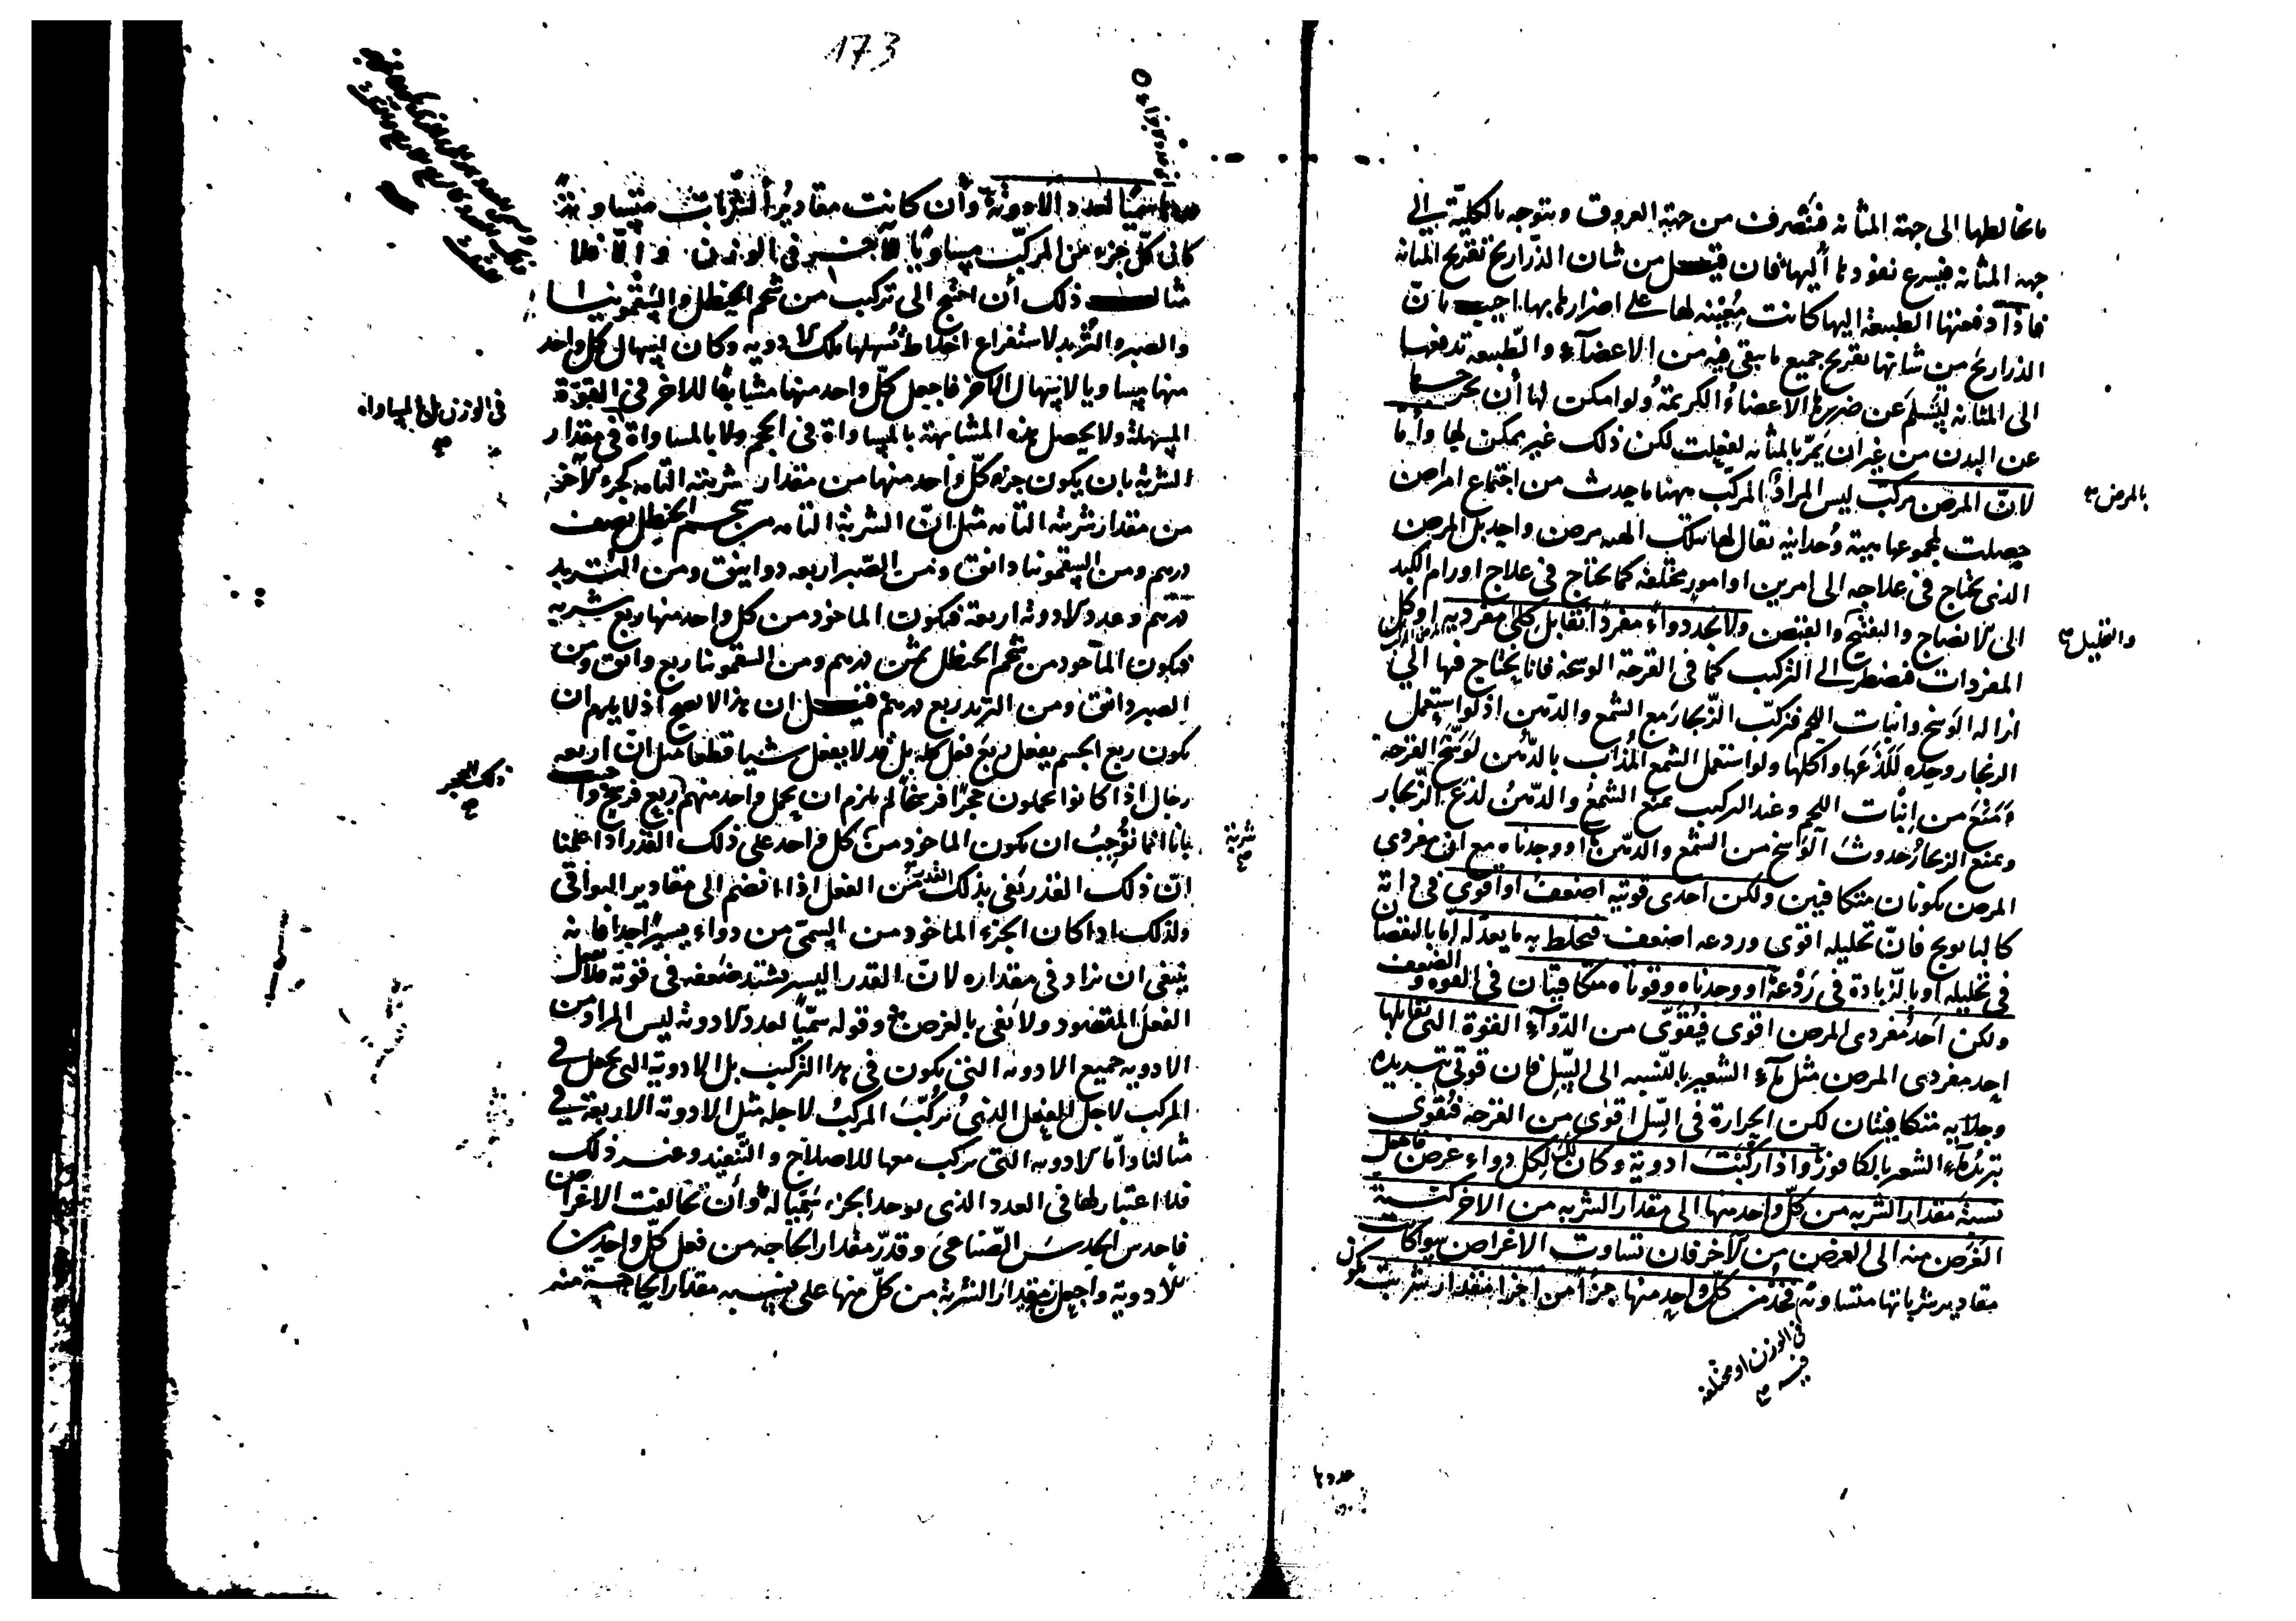 ما يخالطها الى جهة المثانه فتصرف من جهة العروق ويتوجه بالكلية الى
جهه المثانه فيسرع نفودها اليها فان قيل من شان الذراريح تقريح المثانه
فاذا دفعتها الطبيعة اليها كانت معينه لها على اضرارها بها اجيب بانّ
الذراريح من شانها تقريح جميع ما يبقى فيه من الاعضآء والطبيعه تدفعها
الى المثانه ليسلم عن ضررها الاعضاء الكريمة ولو امكن لها أن تخرجها
عن البدن من غير ان يمرّ بالمثانه لفعلت لكن ذلك غير ممكن لها وأمّا
لانّ المرض مركب ليس المراد المركب ههنا ما يحدث من اجتماع امراض
بالمرض
حصلت لمجموعها هيئة وحدانيه يقال لها بتلك الهيئه مرض واحد بل المرض
الذى يحتاج فى علاجه الى امرين او امور مختلفه كما يحتاج فى علاج اورام الكبد
الى الانضاج والتفتيح والقبض ولا نجد دواء مفردا يقابل كلى مفرديه او كل
والتحليل
المفردات فنضطر الى التركيب كما فى القرحة الوسخه فانا نحتاج فيها الى
ازاله الوسخ وانبات اللحم فنركب الزنجار مع الشمع والدهن اذ لو استعمل
الزنجار وحده للذعها واكلها ولو استعمل الشمع المذاب بالدهن لوسّخ القرحة
ومنع من انبات اللحم وعند التركيب يمنع الشمع والدهن لذع الزنجار
ويمنع الزنجار حدوث الوسخ من الشمع والدهن او وجدناه مع ان مفردى
المرض يكونان متكافيين ولكن احدى قوتيه اضعف او اقوى فى ذاته
كالبابونج فانّ تحليله اقوى وردعه اضعف فيخلط به ما يعدله امّا بالنقصان
فى تحليله او بالزيادة فى ردعه او وجدناه وقوتاه متكافيتان فى القوه والضعف
ولكن احد مفردى المرض اقوى فيقوّى من الدوآء القوة التى تقابلها
احد مفردى المرض مثل مآء الشعير بالنسبه الى السّل فان قوتى تبريده
وجلايه متكافيتان لكن الحرارة فى السّل اقوى من القرحه فنقوى
تبريد مآء الشعير بالكافور واذا ركبت ادوية وكان لكل دواء غرض فاجعل
نسبة مقدار الشربه من كلّ واحد منها الى مقدار الشربه من الاخر كنسبة
الغرض منه الى الغرض من الاخر فان تساوت الاغراض سواء كانت
مقادير شرباتها متساوية فخذ من كلّ واحد منها جزأ من اجزا مقدار شربته يكون
فى الوزن او مختلفه
فيه
عددها
173
عددها سميّا لعدد الادوية وأن كانت مقادير الشربات متساوية
كان كلّ جزء من المركّب مساويا للآخر فى الوزن والّا فلا
مثال ذلك أن احتيج الى تركيب من شحم الحنظل والسقمونيا
والصبر والتربد لاستفراغ اخلاط تسهلها تلك الادويه وكان اسهال كل واحد
منها مساويا لاسهال الاخر فاجعل كلّ واحد منها مشابها للاخر فى القوّة
فى الوزن بل المساواه
المسهلة ولا يحصل هذه المشابهة بالمساواة فى الحجم ولا بالمساواة فى مقدار
الشربة بان يكون جزء كلّ واحد منها من مقدار شربته التامه كجزء الآخر
من مقدار شربته التامه مثل انّ الشربة التامه من شحم الحنظل نصف
درهم ومن السقمونيا دانق ومن الصّبر اربعه دوانيق ومن التربد
درهم وعدد الادوية اربعة فيكون الماخوذ من كل واحد منها ربع شربه
فيكون المأخود من شحم الحنظل ثمن درهم ومن السقمونيا ربع دانق ومن
الصبر دانق ومن التربد ربع درهم فقيل ان هذا لا يصح اذ لا يلزم ان
يكون ربع الجسم يفعل ربع فعل كله بل قد لا يفعل شيا قطعا مثل انّ اربعه
رجال اذا كانوا يحملون حجرا فرسخا لم يلزم ان يحمل واحد منهم ربع فرسخ واجيب
ذلك الحجر
بانا انما نوجب ان يكون الماخوذ من كل واحد على ذلك القدر اذا علمنا
شربة
انّ ذلك القدر يفى بذلك القدر من الفعل اذا انضم الى مقادير البواقى
ولذلك اذا كان الجزء الماخوذ من السمّى من دواء يسيرا جدا فانه
ينبغى ان يزاد فى مقداره لانّ القدر اليسير يشتد ضعفه فى قوته فلا يفعل
الفعل المقصود ولا يفى بالغرض وقوله سميّا لعدد الادوية ليس المراد من
الادويه جميع الادويه التى يكون فى هذا التركيب بل الادوية التى يجعل فى
المركب لاجل الفعل الذى يركّب المركب لاجله مثل الادوية الاربعة فى
مثالنا وامّا الادويه التى يركب معها للاصلاح والتنفيذ وغير ذلك
فلا اعتبار لها فى العدد الذى يوخذ الجزء سميّا له وأن تخالفت الاغراض
فاحدس الحدس الصّناعى وقدّر مقدار الحاجه من فعل كلّ واحد من
الادوية واجعل مقدار الشربة من كلّ منها على نسبه مقدار الحاجة منه